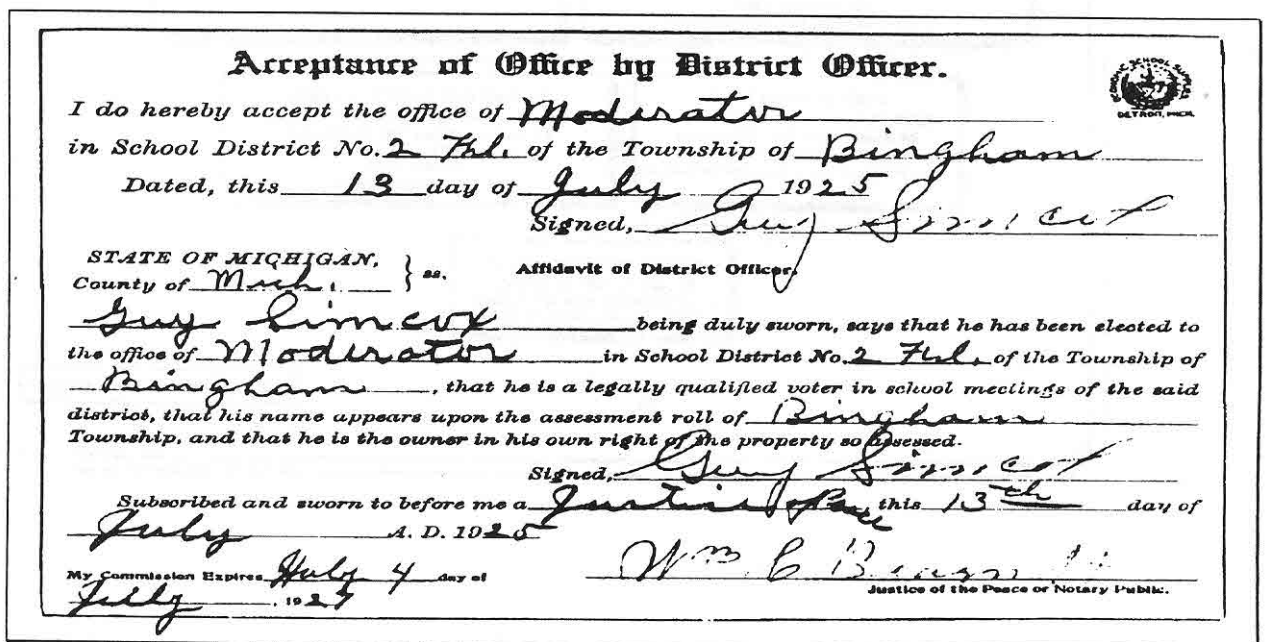 Acceptance of Office by District Officer.
ECONOMIC SCHOOL SUPPLY
DETROIT, MICH.
I do hereby accept the office of Moderator
in School District No. 2 Frl. of the Township of Bingham
Dated, this 13 day of July 1925
Signed, Guy Simcox
STATE OF MICHIGAN,
County of Mich. } ss.
Affidavit of District Officer.
Guy Simcox being duly sworn, says that he has been elected to
the office of Moderator in School District No. 2 Frl. of the Township of
Bingham, that he is a legally qualified voter in school meetings of the said
district, that his name appears upon the assessment roll of Bingham
Township, and that he is the owner in his own right of the property so assessed.
Signed, Guy Simcox
Subscribed and sworn to before me a Justice of Peace this 13th day of
July A. D. 1925
Wm C
My Commission Expires July 4 day of
Justice of the Peace or Notary Public.
July, 1927